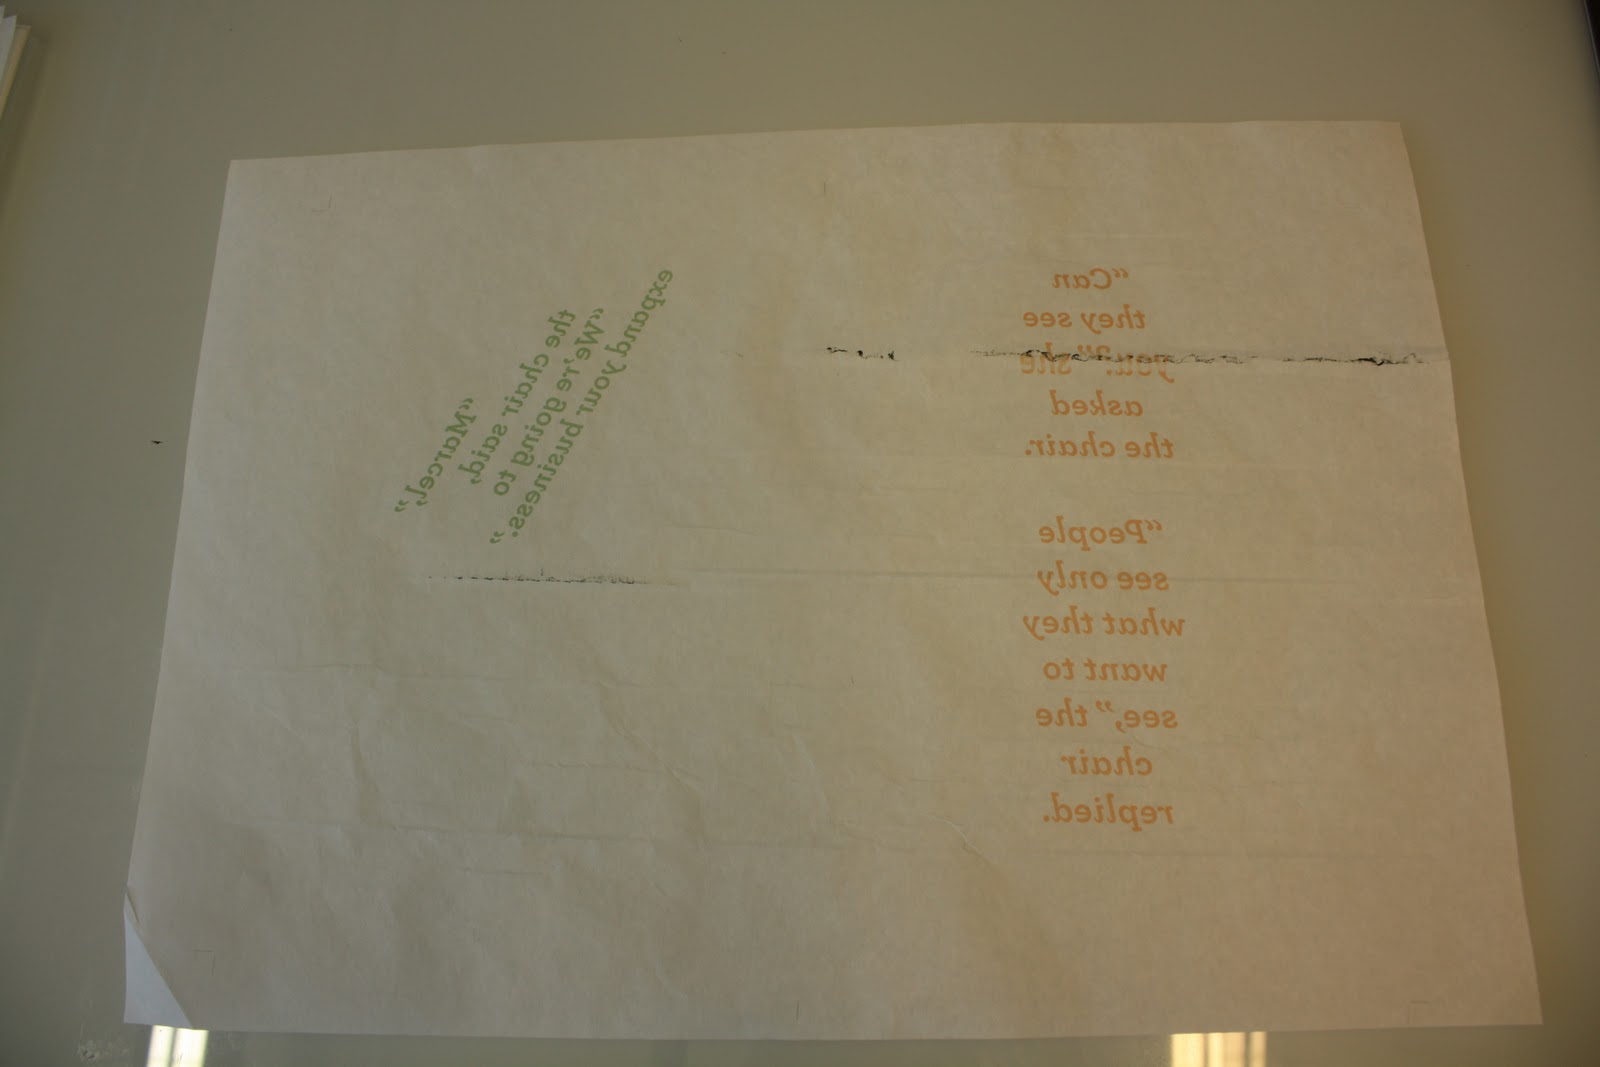 “Can
they see
you?” she
asked
the chair.
“People
see only
what they
want to
see,” the
chair
replied.
“Marcel,”
the chair said,
“We’re going to
expand your business.”